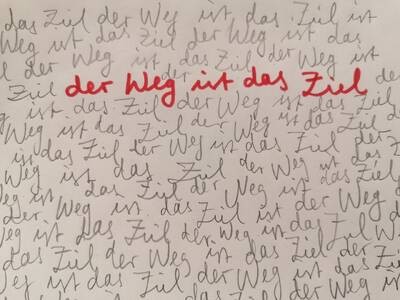 das Ziel der Weg ist das Ziel ist
Weg ist das Ziel der Weg ist das
Ziel der Weg ist das Ziel der Weg
Ziel der Weg ist das Ziel der
ist das Ziel der Weg ist das
Weg ist das Ziel der Weg ist das
ist das Ziel der Weg ist das Ziel
Weg ist das Ziel der Weg ist das Ziel
ist das Ziel der Weg ist das Ziel
der Weg ist das Ziel ist der Weg
Weg ist das Ziel der Weg ist das Ziel
das Ziel der Weg ist das Ziel der
Weg ist das Ziel der Weg ist das
Ziel der Weg ist das Ziel